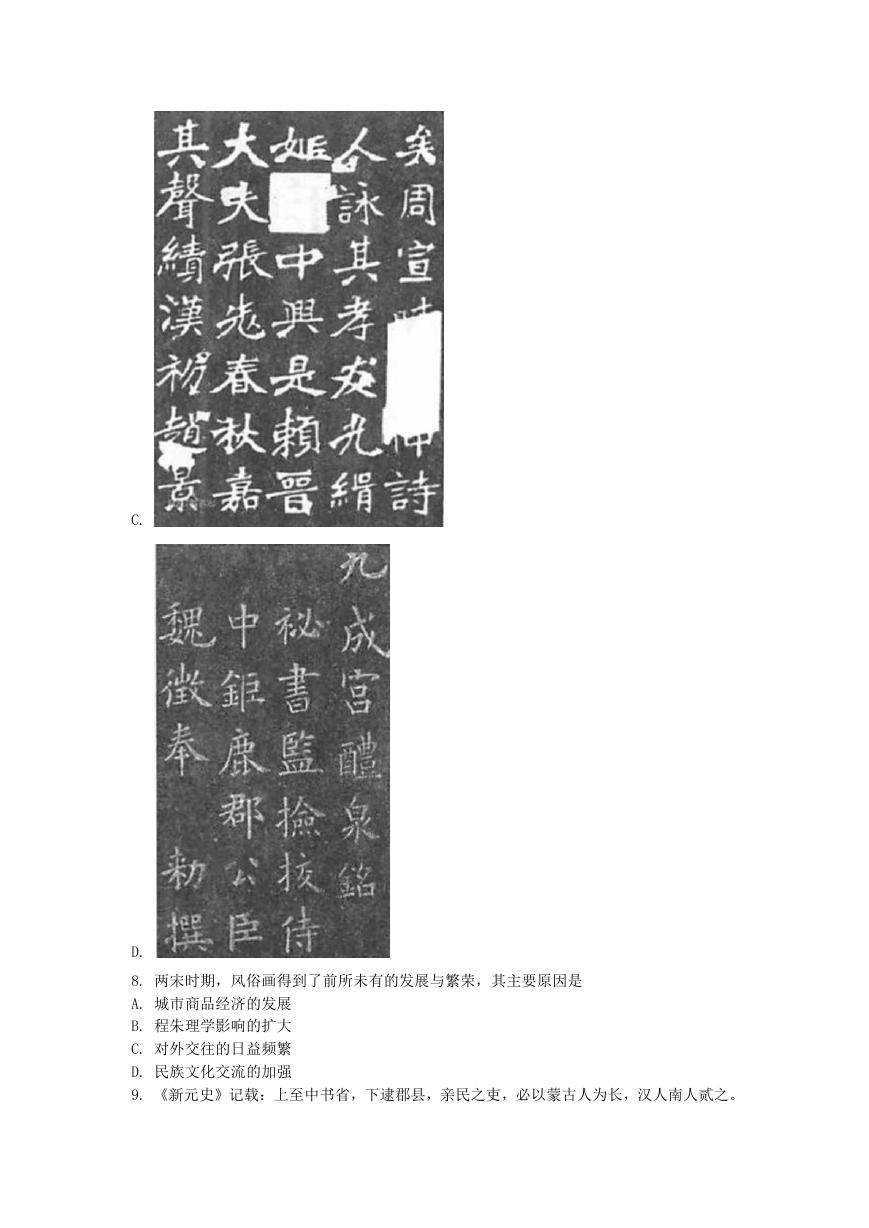 矣周宣
诗
人詠其孝友光緝
姬
中興是賴晉
大夫張老春秋嘉
其聲績漢初趙景
C.
九成宮醴泉銘
祕書監撿挍侍
中鉅鹿郡公臣
魏徵奉
勑撰
D.
8. 两宋时期，风俗画得到了前所未有的发展与繁荣，其主要原因是
A. 城市商品经济的发展
B. 程朱理学影响的扩大
C. 对外交往的日益频繁
D. 民族文化交流的加强
9. 《新元史》记载：上至中书省，下逮郡县，亲民之吏，必以蒙古人为长，汉人南人贰之。